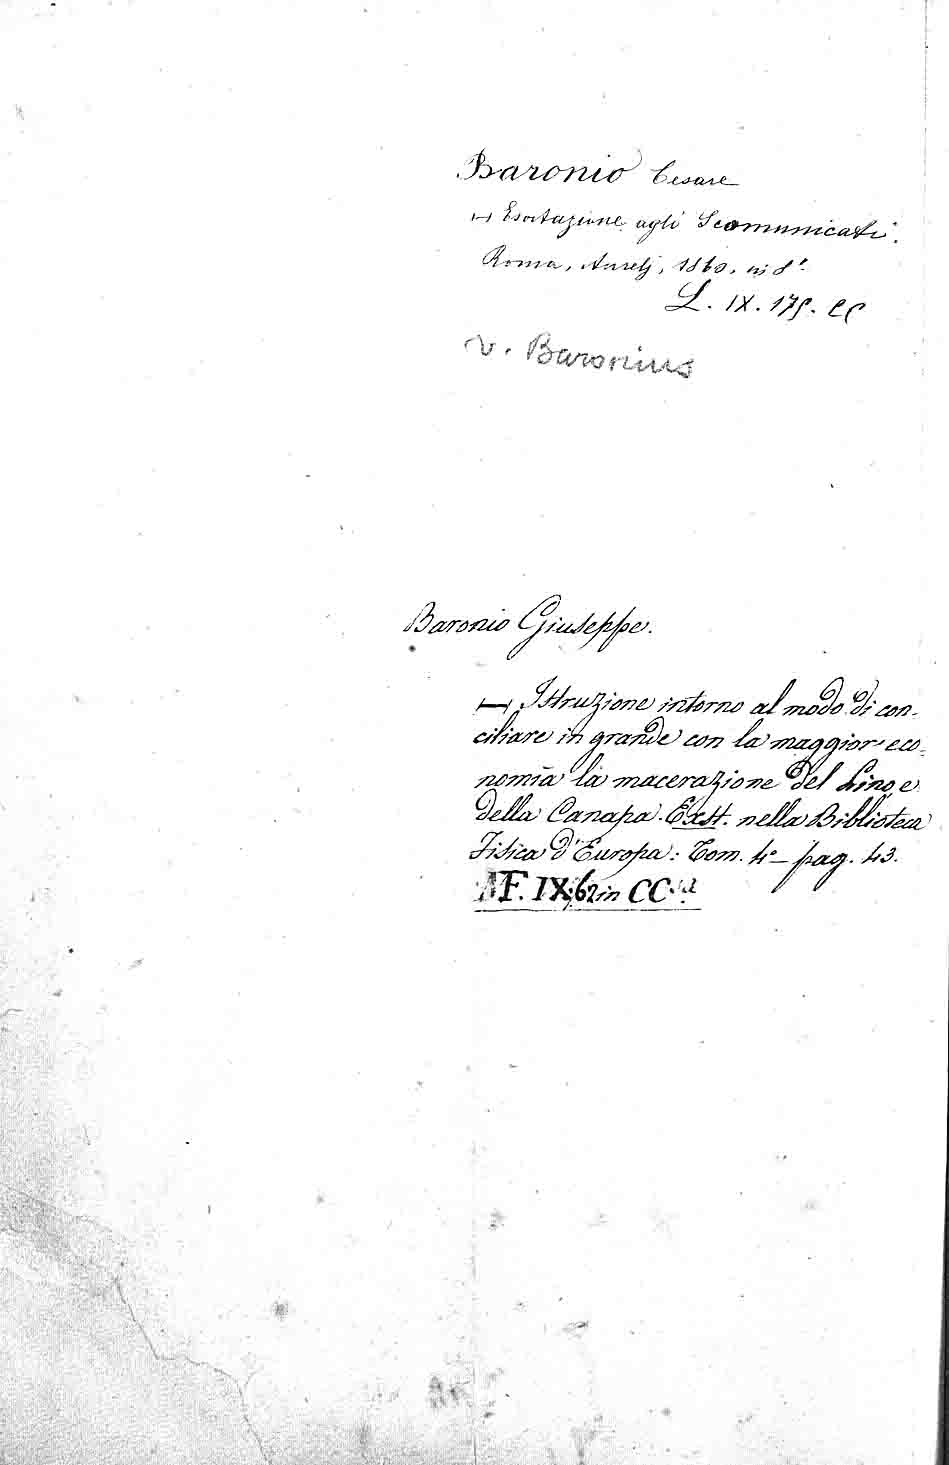 Baronio Cesare
— Esortazione agli Scomunicati.
Roma, Aurelj, 1860. in 8°.
L. IX. 175. CC
v. Baronius
Baronio Giuseppe.
— Istruzione intorno al modo di con-
ciliare in grande con la maggior eco-
nomia la macerazione del Lino e
della Canapa. Exst. nella Biblioteca
Fisica d'Europa: Tom. 4° pag. 43.
F. IX. 62 in CC